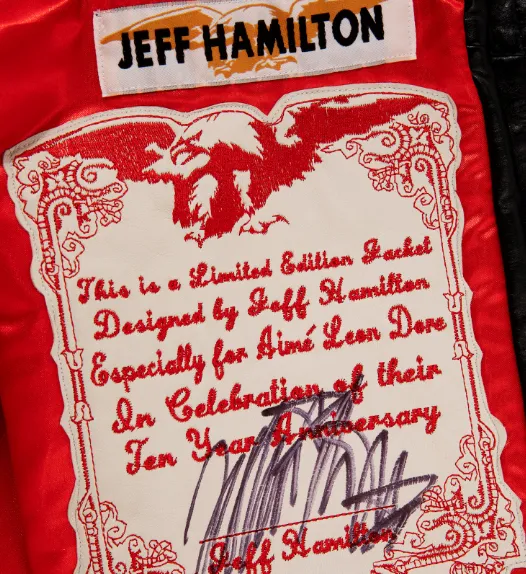 JEFF HAMILTON
This is a Limited Edition Jacket
Designed by Jeff Hamilton
Especially for Aimé Leon Dore
In Celebration of their
Ten Year Anniversary
Jeff Hamilton